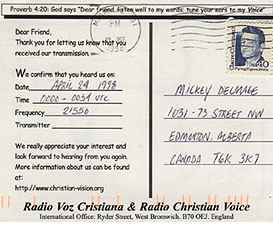 Proverb 4:20: God says "Dear friend, listen well to my words; tune your ears to my Voice"
Dear Friend,
Thank you for letting us know that you
received our transmission.
We confirm that you heard us on:
Date APRIL 24 1998
Time 0000 - 0054 UTC
Frequency 21550
Transmitter
We really appreciate your interest and
look forward to hearing from you again.
More information about us can be found
at:
http://www.christian-vision.org
PM
1998
40
MICKEY DELMAGE
1031 - 73 STREET NW
EDMONTON, ALBERTA
CANADA T6K 3K7
Radio Voz Cristiana & Radio Christian Voice
International Office: Ryder Street, West Bromwich. B70 OEJ. England